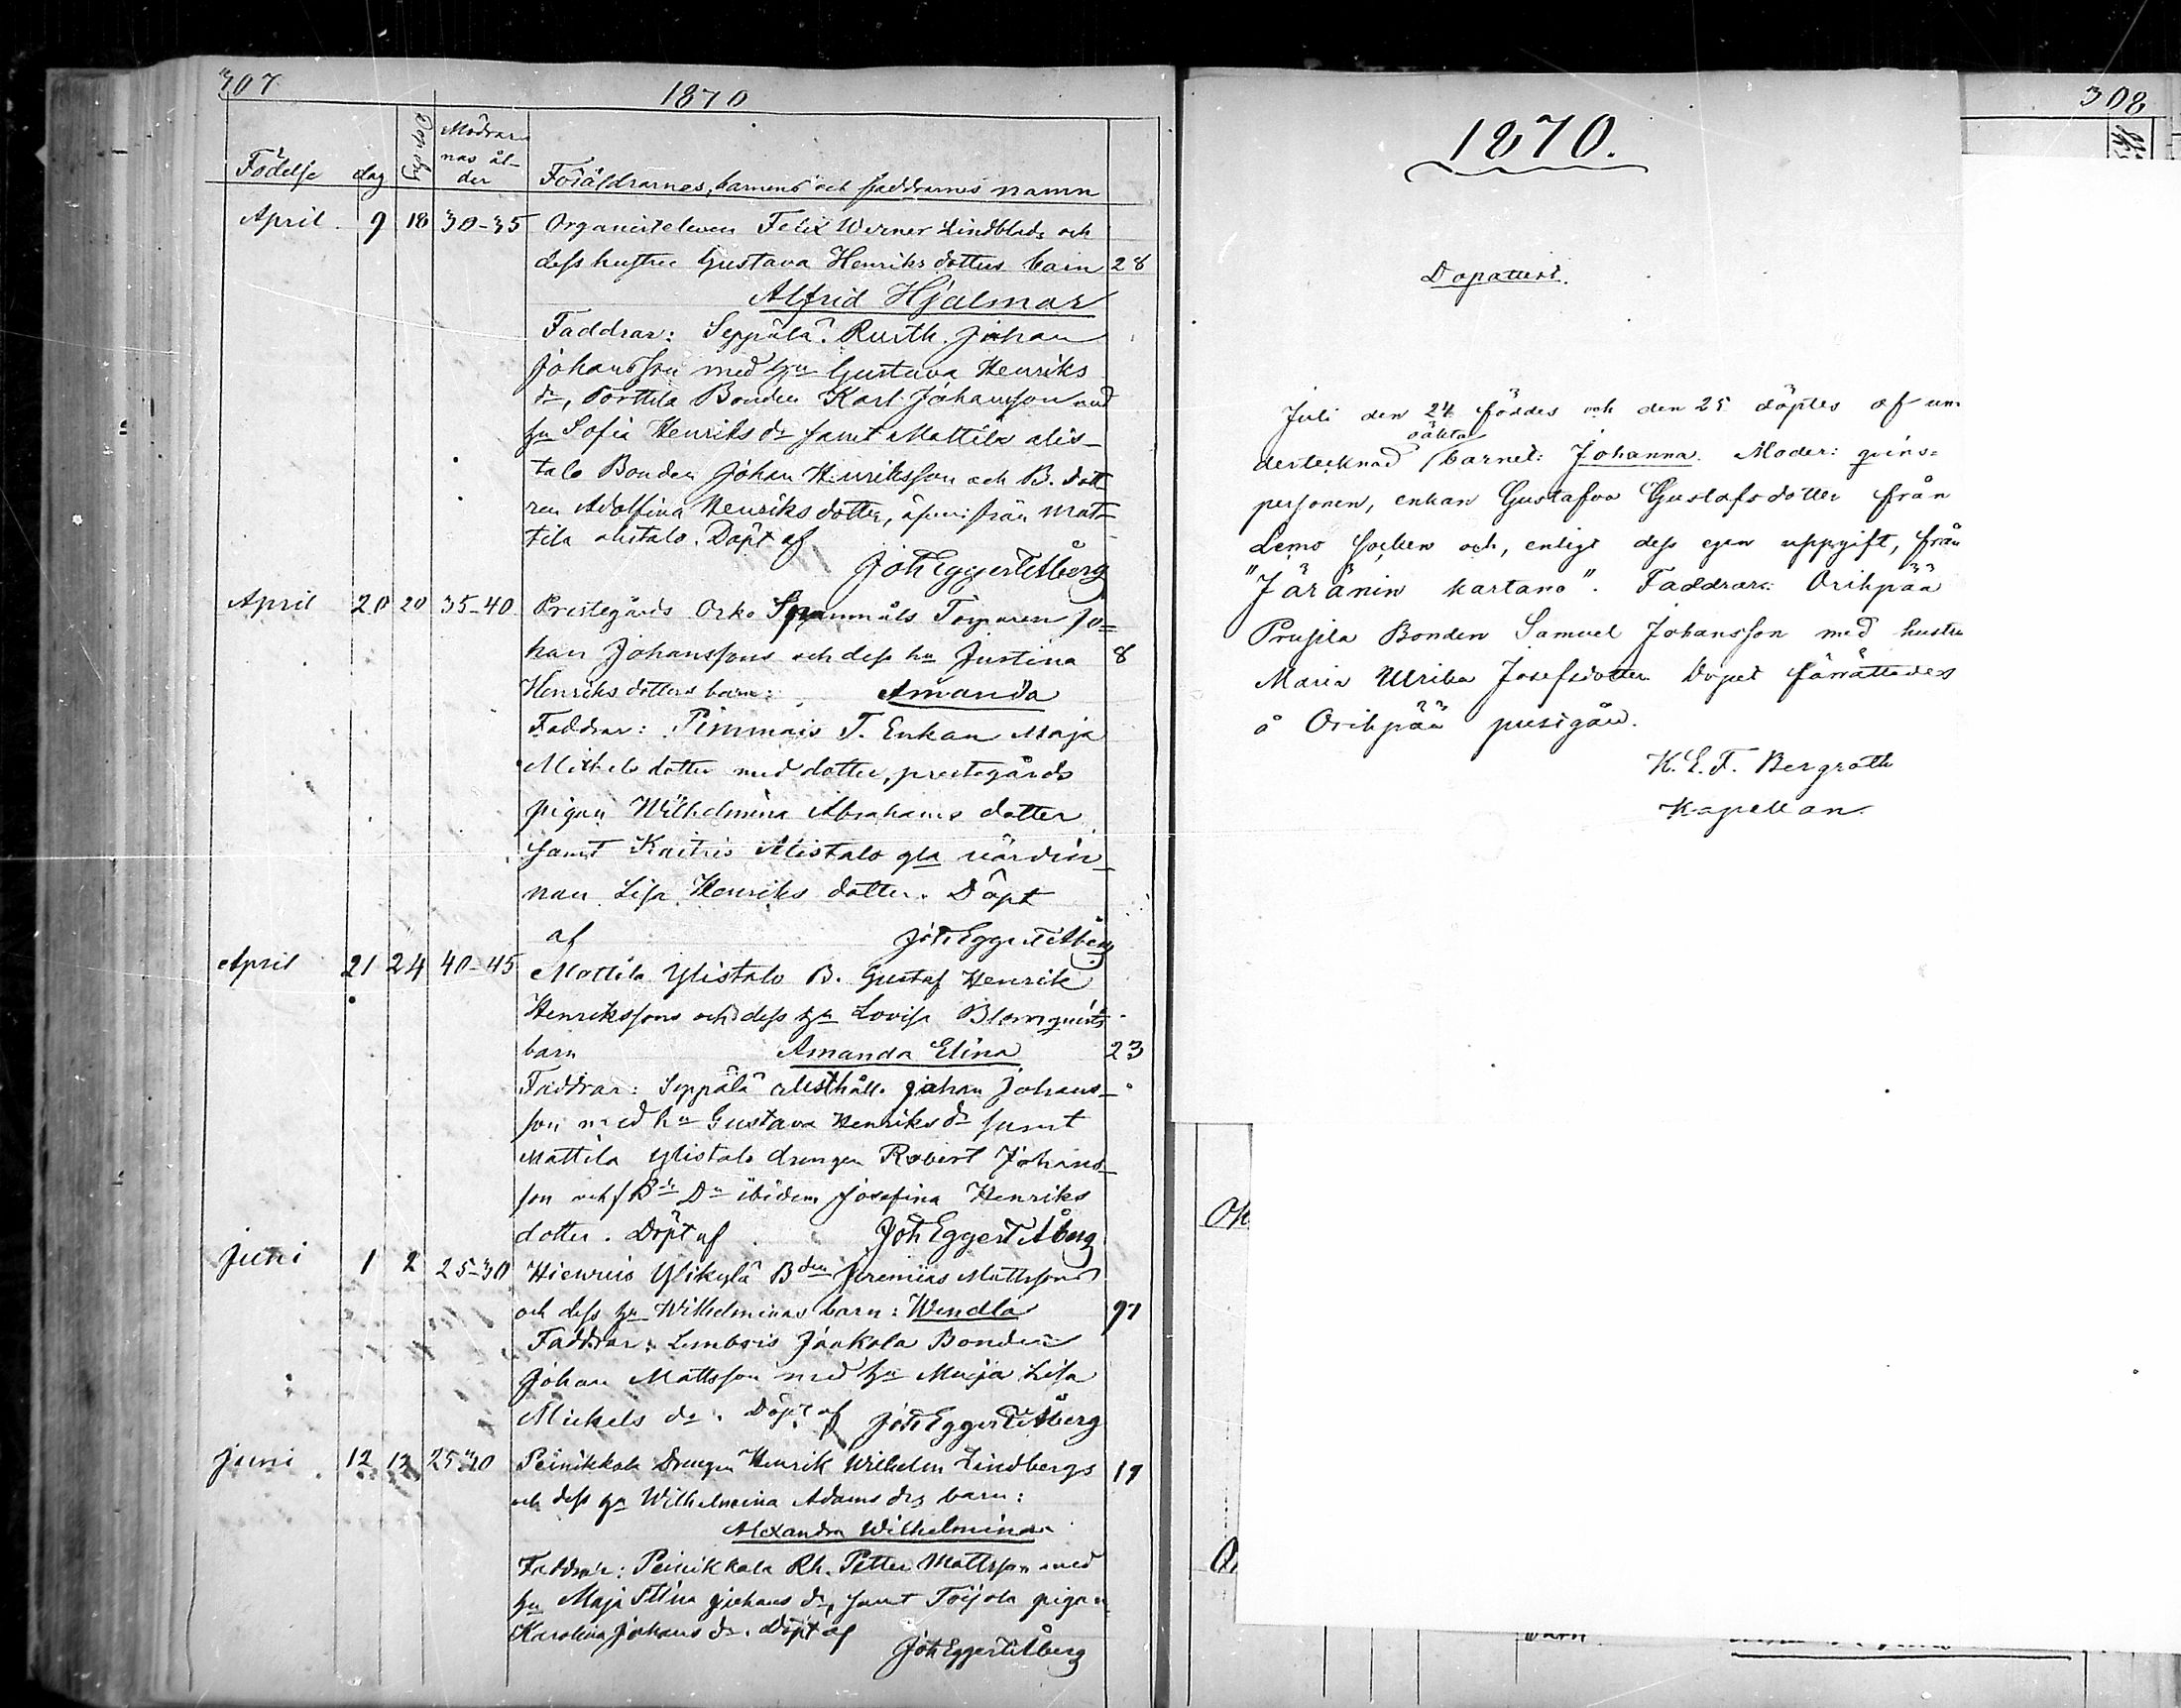 307
1870
Födelse dag Dop dag Mödrar
nas ål-
der Föräldrarnas, barnens och faddrarnes namn
April 9 18 30-35 Organisteleven Felix Werner Lindblads och
dess hustru Gustava Henriksdotters barn 28
Alfrid Hjalmar
Faddrar: Seppälä Rusth. Johan
Johansson med hu Gustava Henriks
dr, Porttila Bonden Karl Johansson med
hu Sofia Henriks dr samt Mattila alis-
talo Bonden Johan Henriksson och B. dott
ren Adolfina Henriksdotter, äfven från Mat-
tila alistalo. Döpt af
Joh Eggert Åberg
April 20 20 35-40 Prestegårds Orko Torparen Jo=
han Johanssons och dess hu Justina 8
Henriksdotters barn: Amanda
Faddrar: Pimmais T. Enkan Maja
Mickelsdotter med dotter, prestegårds
pigan Wilhelmina Abrahams dotter
samt Kaitris Alistalo gla värdin-
nan Lisa Henriks dotter. Döpt
af Joh Eggert Åberg
April 21 24 40-45 Mattila Ylistalo B. Gustaf Henrik
Henrikssons och dess hu Lovisa Blomqvists
barn Amanda Elina 23
Faddrar: Seppälä Rusthåll. Johan Johans-
son med hu Gustava Henriks dr samt
Mattila Ylistalo drengen Robert Johans-
son och B. Dn ibidem Josefina Henriks
dotter. Döpt af Joh Eggert Åberg
Juni 1 2 25-30 Ylikylä Bden Jeremias Mattssons
och dess hu Wilhelminas barn: Wendla 97
Faddrar: Lembois Jaakola Bonden
Johan Mattsson med hu Maja Lisa
Mickels dr. Döpt af Joh Eggert Åberg
Juni 12 12 25-30 Peinikkala Drengen Henrik Wilhelm Lindbergs 19
och dess hu Wilhelmina Adams drs barn:
Alexandra Wilhelmina
Faddrar: Peinikkala Rh. Petter Mattsson med
hu Maja Stina Johans dr, samt Toijola pigan
Karolina Johans dr. Döpt af
Joh Eggert Åberg
308
1870.
Dopattest.
Juli den 24 föddes och den 25 döptes af un-
oäkta
dertecknad barnet: Johanna. Moder: qvins=
personen, enkan Gustafva Gustafsdotter från
Lemo socken och, enligt dess egen uppgift, från
"Järänin kartano". Faddrar: Orihpää
Prusila Bonden Samuel Johansson med hustru
Maria Ulrika Josefsdotter. Dopet förrättades
å Orihpää prestgård.
K. E. F. Bergroth
Kapellan.
barn